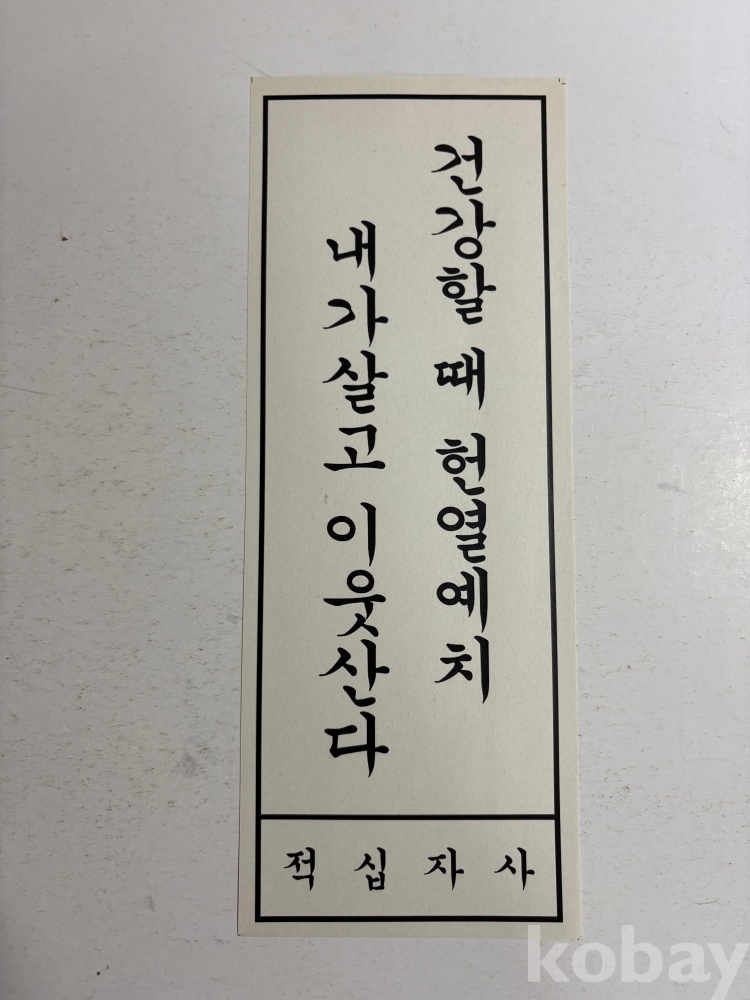 건강할 때 헌열예치
내가살고 이웃산다
적십자사
kobay